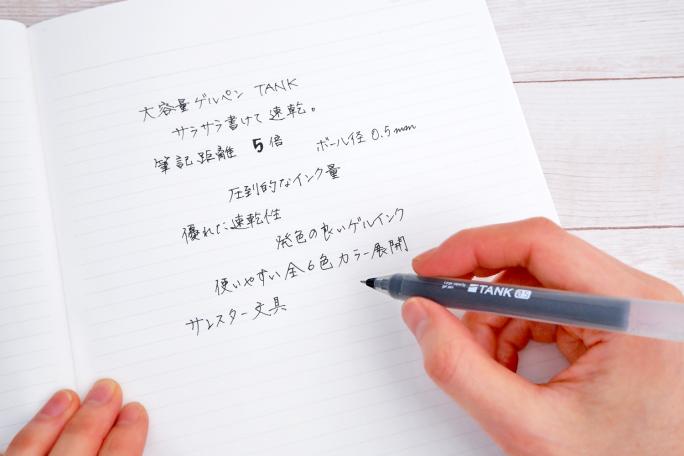 大容量ゲルペン TANK
サラサラ書けて速乾。
筆記距離 5倍 ボール径 0.5mm
圧倒的なインク量
優れた速乾性
発色の良いゲルインク
使いやすい全6色カラー展開
サンスター文具
TANK 0.5